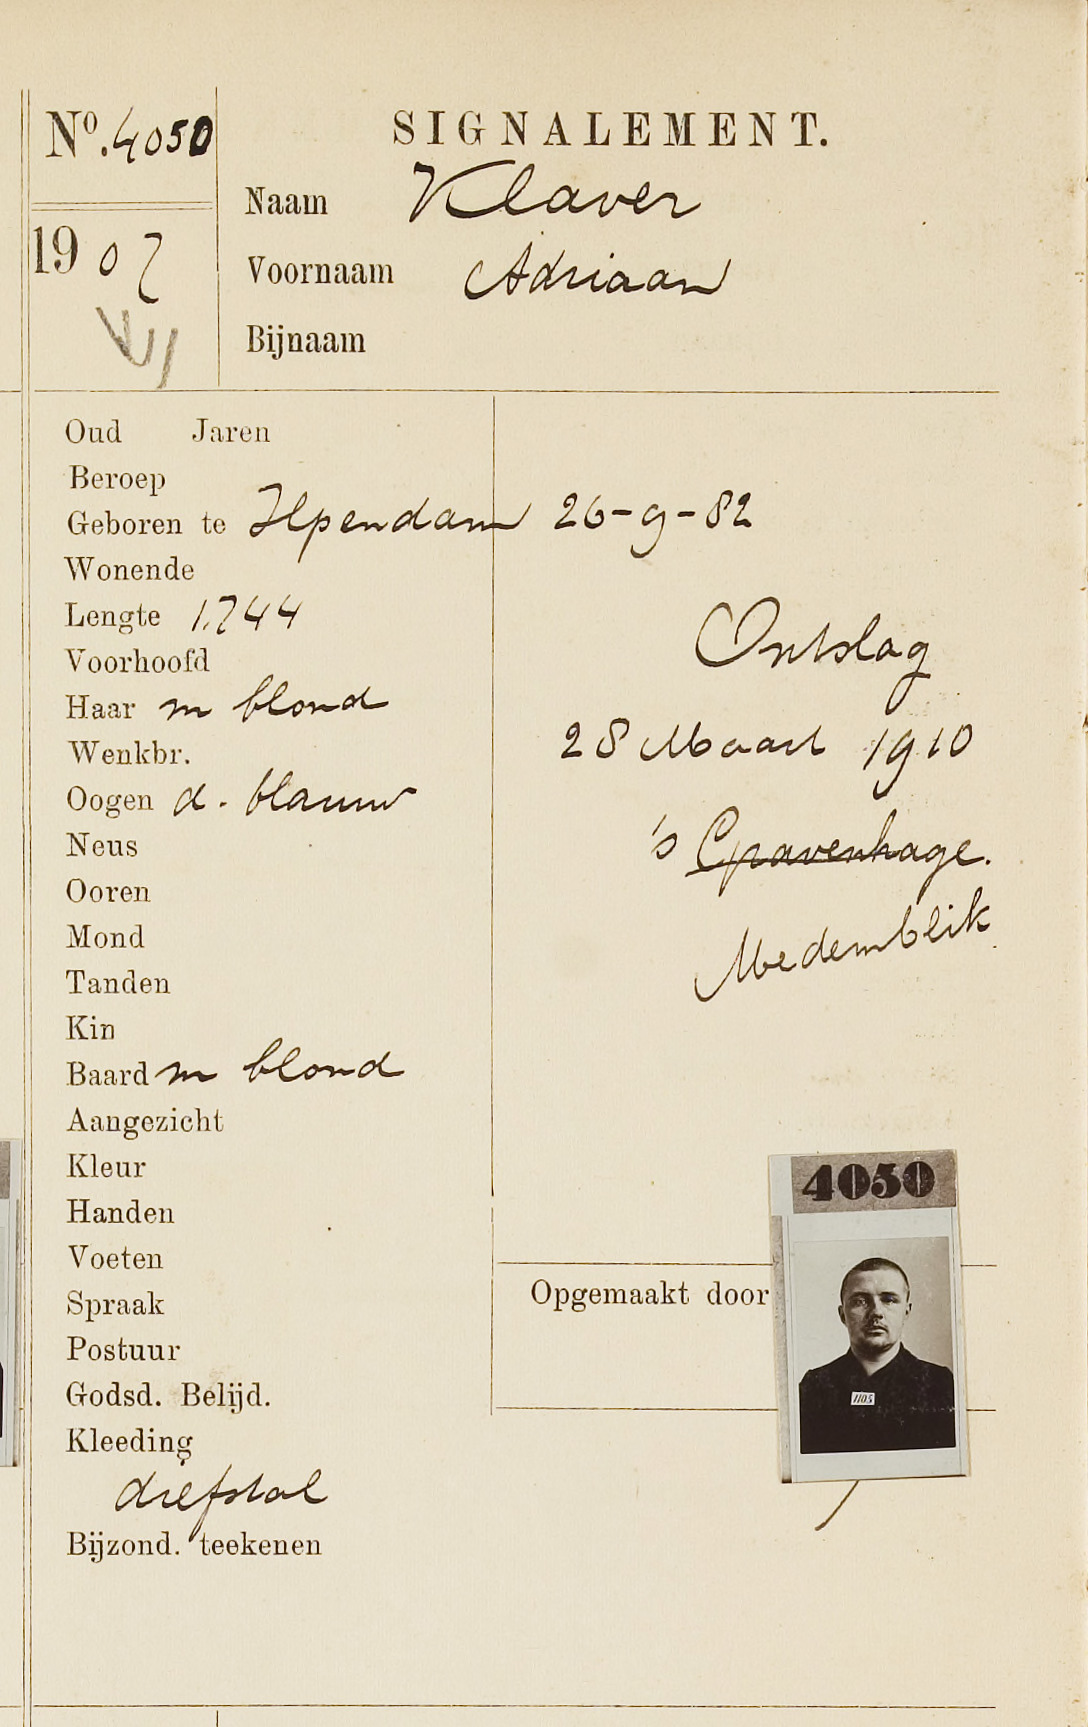 No. 4050
SIGNALEMENT.
Naam Klaver
1907
Voornaam Adriaan
Bijnaam
Oud Jaren
Beroep
Geboren te Ilpendam 26-9-82
Wonende
Lengte 1.744
Voorhoofd
Haar m blond
Wenkbr.
Oogen d. blauw
Neus
Ooren
Mond
Tanden
Kin
Baard m blond
Aangezicht
Kleur
Handen
Voeten
Spraak
Postuur
Godsd. Belijd.
Kleeding
diefstal
Bijzond. teekenen
Ontslag
28 Maart 1910
's Gravenhage.
Medemblik
4050
Opgemaakt door
1105